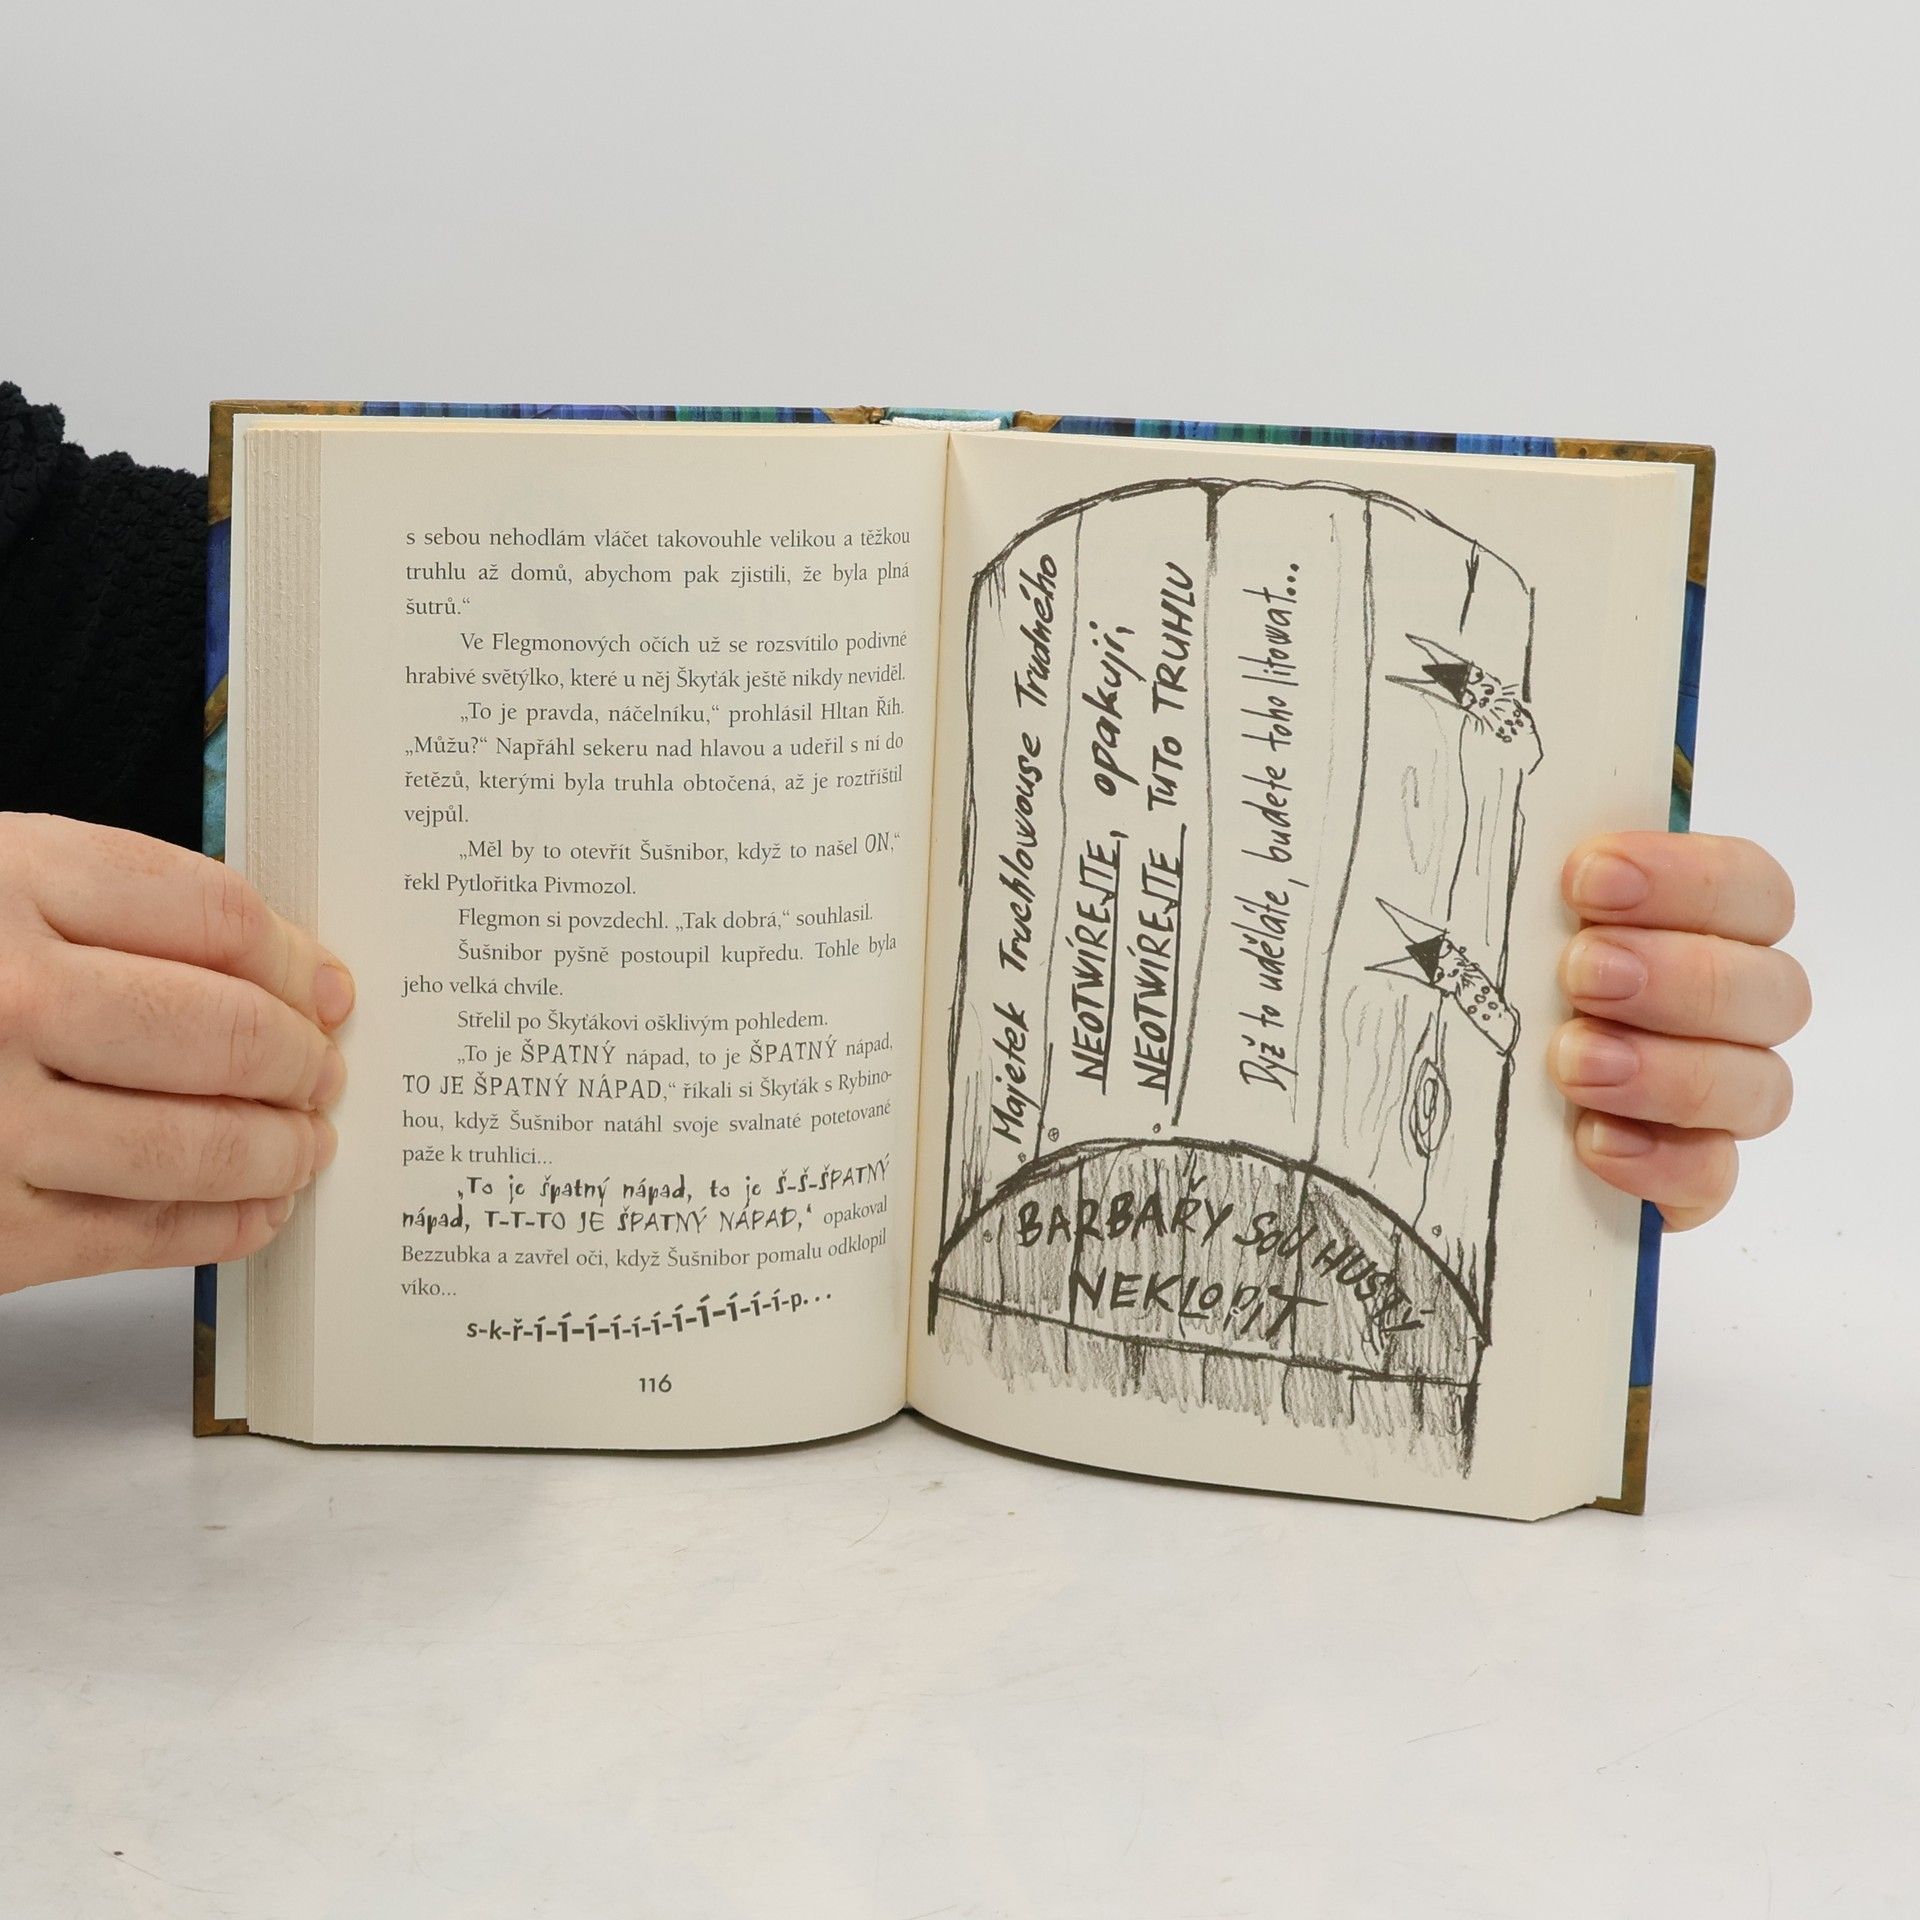 s sebou nehodlám vláčet takovouhle velikou a těžkou
truhlu až domů, abychom pak zjistili, že byla plná
šutrů.“
Ve Flegmonových očích už se rozsvítilo podivné
hrabivé světýlko, které u něj Škyťák ještě nikdy neviděl.
„To je pravda, náčelníku,“ prohlásil Hltan Říh.
„Můžu?“ Napřáhl sekeru nad hlavou a udeřil s ní do
řetězů, kterými byla truhla obtočená, až je roztříštil
vejpůl.
„Měl by to otevřít Šušnibor, když to našel ON,“
řekl Pytlořitka Pivmozol.
Flegmon si povzdechl. „Tak dobrá,“ souhlasil.
Šušnibor pyšně postoupil kupředu. Tohle byla
jeho velká chvíle.
Střelil po Škyťákovi ošklivým pohledem.
„To je ŠPATNÝ nápad, to je ŠPATNÝ nápad,
TO JE ŠPATNÝ NÁPAD,“ říkali si Škyťák s Rybino-
hou, když Šušnibor natáhl svoje svalnaté potetované
paže k truhlici...
„To je špatný nápad, to je Š-Š-ŠPATNÝ
nápad, T-T-TO JE ŠPATNÝ NÁPAD,“ opakoval
Bezzubka a zavřel oči, když Šušnibor pomalu odklopil
víko...
s-k-ř-í-í-í-í-í-í-í-í-í-í-í-p...
116
Majetek Truchlowouse Trudného
NEOTWÍREJTE, opakuji,
NEOTWÍREJTE TUTO TRUHLU
Dyž to uděláte, budete toho litowat...
BARBAŘY SOU HUSTÝ
NEKLOPIT